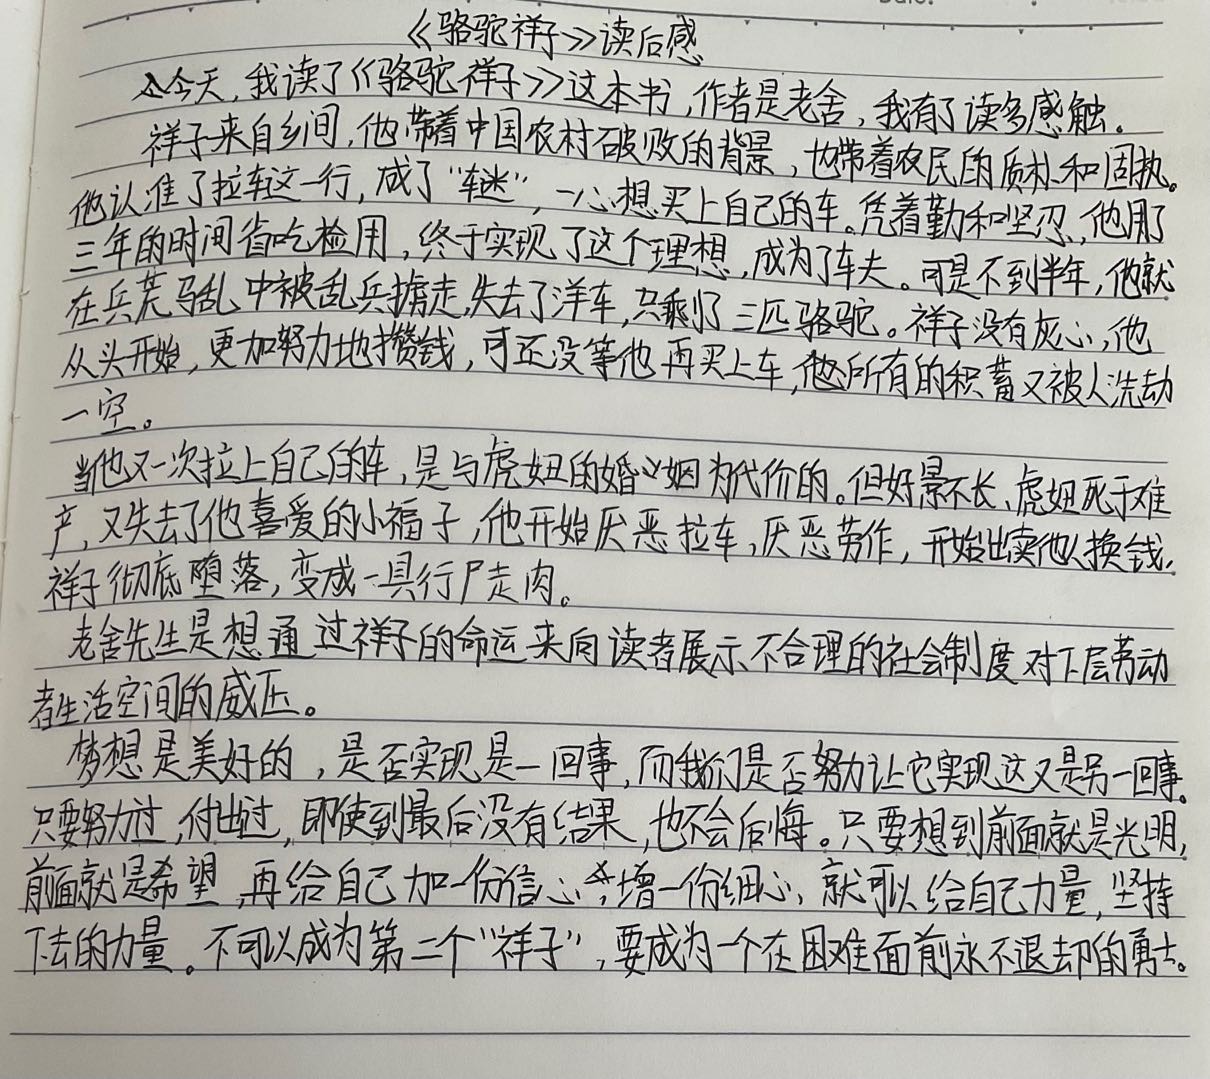 《骆驼祥子》读后感
今天,我读了《骆驼祥子》这本书,作者是老舍,我有了读多感触.
祥子来自乡间,他带着中国农村破败的背景,也带着农民的质朴和固执。
他认准了拉车这一行,成了“车迷”,一心想买上自己的车。凭着勤和坚忍,他用了
三年的时间省吃检用,终于实现了这个理想,成为了车夫。可是不到半年,他就
在兵荒马乱中被乱兵掳走,失去了洋车,只剩了三匹骆驼。祥子没有灰心,他
从头开始,更加努力地攒钱,可还没等他再买上车,他所有的积蓄又被人洗劫
一空。
当他又一次拉上自己的车,是与虎妞的婚姻为代价的。但好景不长、虎妞死于难
产,又失去了他喜爱的小福子,他开始厌恶拉车,厌恶劳作,开始出卖他人换钱.
祥子彻底堕落,变成一具行尸走肉。
老舍先生是想通过祥子的命运来向读者展示不合理的社会制度对下层劳动
者生活空间的威压。
梦想是美好的,是否实现是一回事,而我们是否努力让它实现这又是另一回事.
只要努力过,付出过,即使到最后没有结果,也不会后悔。只要想到前面就是光明,
前面就是希望,再给自己加一份信心,增一份细心,就可以给自己力量,坚持
下去的力量。不可以成为第二个“祥子”,要成为一个在困难面前永不退却的勇士。